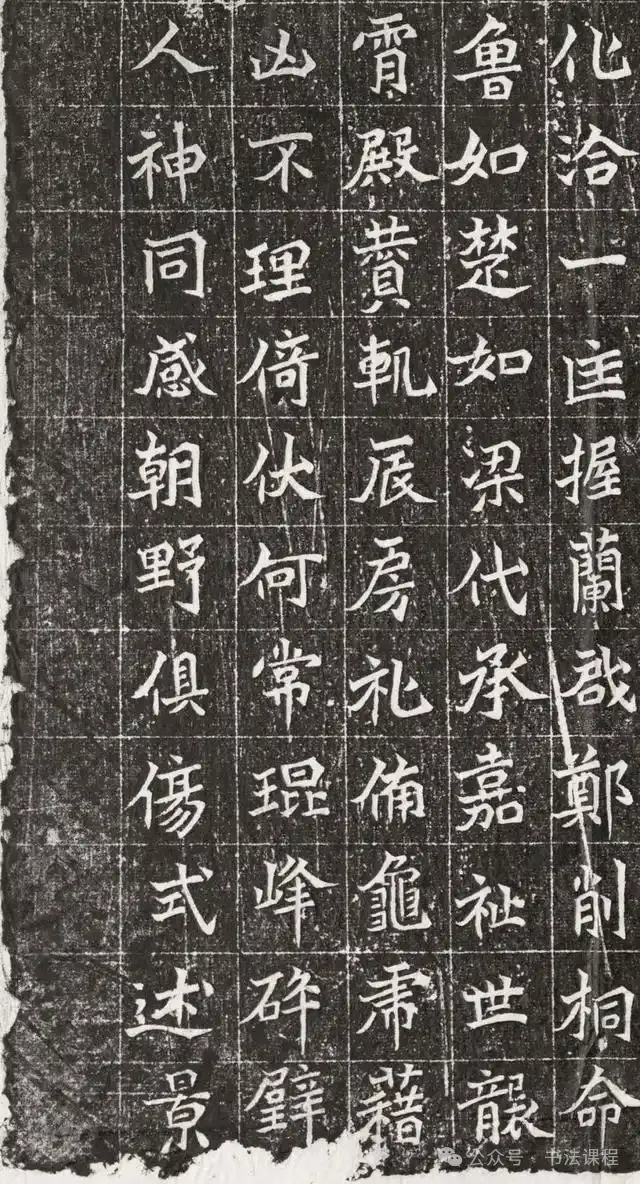 化洽一匡握蘭啟鄭削桐命
魯如楚如梁代承嘉祉世襲
霄殿賛軌辰房礼俻龜虎藉
凶不理倚伏何常琨峰碎璧
人神同感朝野俱傷式述景
公众号·书法课程